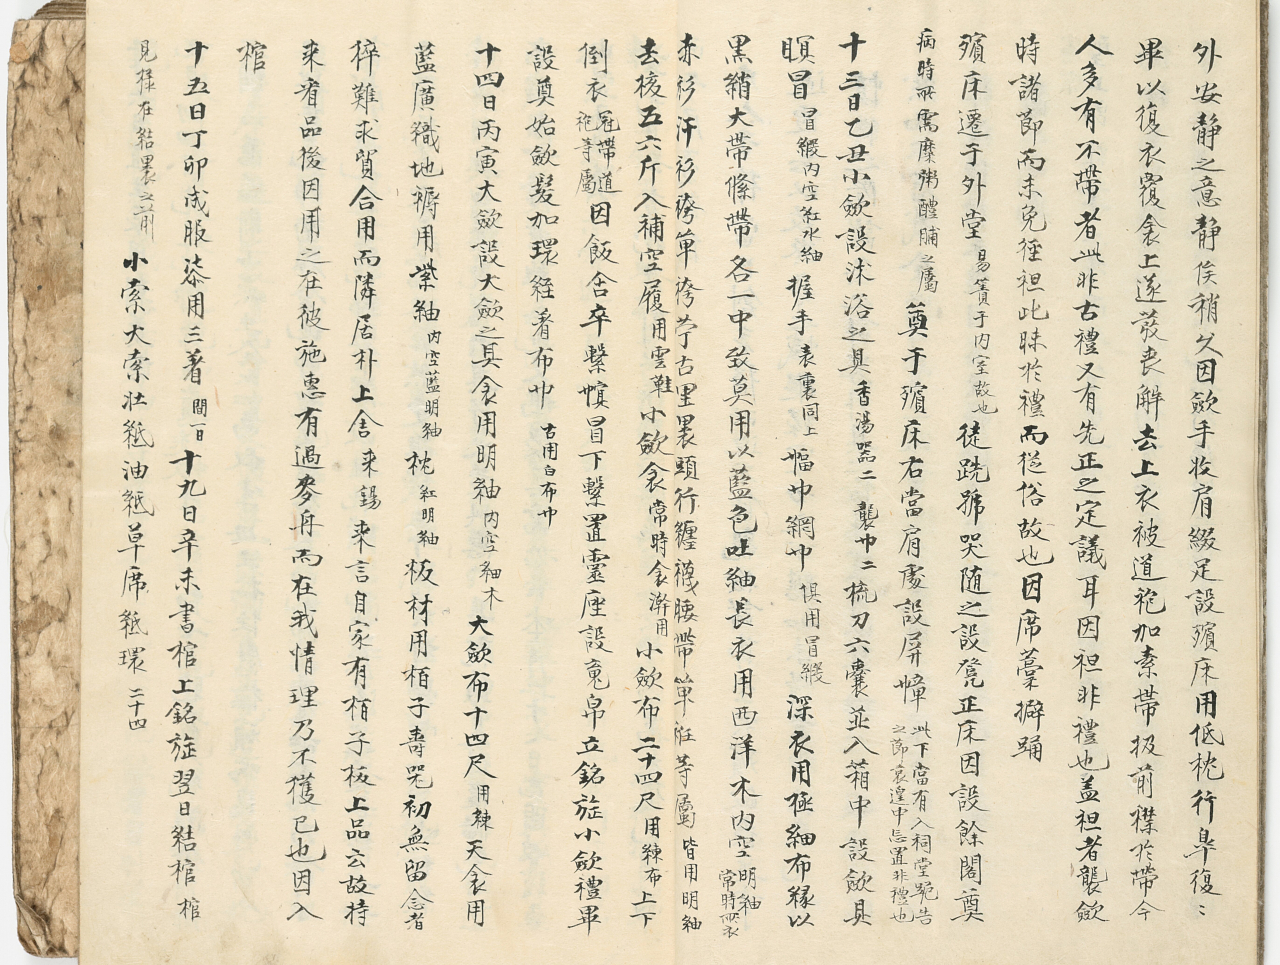 外安静之意静俟稍久因斂手收肩綴足設殯床用低枕行皐復〻
畢以復衣覆衾上遂發喪解去上衣被道袍加素帶扱前襟於帶今
人多有不帶者此非古禮又有先正之定議耳因袒非禮也盖袒者襲斂
時諸節而未免徑袒此昧於禮而從俗故也因席藁擗踊
殯床遷于外堂易簀于内室故也徒跣號哭随之設凳正床因設餘閣奠
病時所需糜粥醴脯之屬奠于殯床右當肩處設屏幛此下當有入祠堂跪告之節哀遑中忘置非禮也
十三日乙丑小斂設沐浴之具香湯器二襲巾二梳刀六囊並入箱中設斂具
瞑冒冒緞内空紅水紬握手表裏同上幅巾網巾俱用冒緞深衣用極細布緣以
黑綃大帶絛帶各一中致莫用以藍色吐紬長衣用西洋木内空明紬常時所衣
赤衫汗衫袴単袴苧古里裹頭行纏襪腰帶単衽等屬皆用明紬
去核五六斤入補空履用雲鞋小斂衾常時衾澣用小斂布二十四尺用練布上下
倒衣冠帶道袍等屬因飯含卒繫幎冒下繫置靈座設䰟帛立銘旌小斂禮畢
設奠始斂髮加環絰着布巾古用白布巾
十四日丙寅大斂設大斂之具衾用明紬内空紬木大斂布十四尺用練天衾用
藍廣織地褥用紫紬内空藍明紬枕紅明紬板材用栢子壽器初無留念者
梓難求貿合用而隣居朴上舍來錫来言自家有栢子板上品云故特
来看品後因用之在彼施惠有過麥舟而在我情理乃不獲已也因入
棺
十五日丁卯成服漆用三著間一日十九日辛未書棺上銘旌翌日結棺棺
見樣在結裹之前小索大索壮紙油紙草席紙環二十四